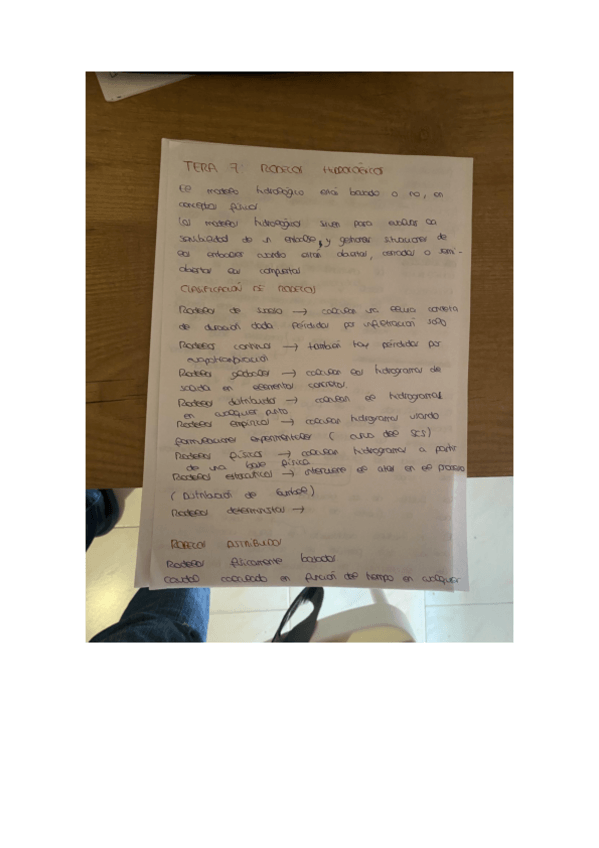 TEMA 7 MODELOS HIDROLÓGICOS
El modelo hidrológico está basado o no, en
conceptos físicos
Los modelos hidrológicos sirven para evaluar la
sensibilidad de un embalse, y generar situaciones de
los embalses cuando están abiertas, cerradas o semi-
abiertas las compuertas
CLASIFICACIÓN DE MODELOS
Modelos de suceso → calculan una lluvia concreta
de duración dada pérdidas por infiltración solo
Modelos continuos → también hay pérdidas por
evapotranspiración
Modelos globales → calculan los hidrogramas de
salida en elementos concretos.
Modelos distribuidos → calculan el hidrograma
en cualquier punto
Modelos empíricos → calculan hidrogramas usando
formulaciones experimentales ( curva del SCS)
Modelos físicos → calculan hidrogramas a partir
de una base física
Modelos estocásticos → interviene el azar en el proceso
( Distribución de Gumbel )
Modelos deterministas →
MODELOS DISTRIBUIDOS
Modelos físicamente basados
Caudal calculado en función del tiempo en cualquier